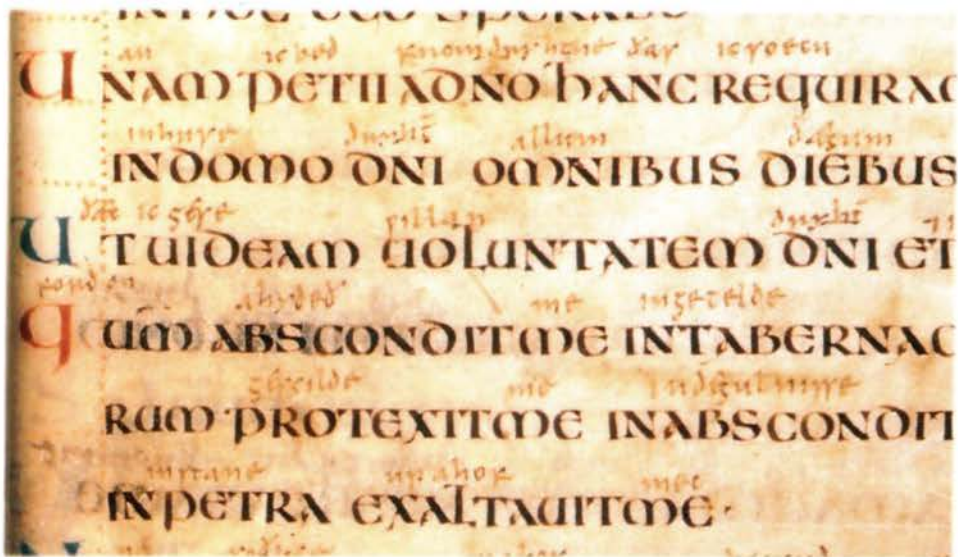 IN HOC EGO SPERABO
an ic bed from dryhtne ðas ic soecu
UNAM PETII A DNO HANC REQUIRA
in huse dryht̄ allum dægum
IN DOMO DNI OMNIBUS DIEBUS
ðæt ic gese willan dryht̄
UT UIDEAM UOLUNTATEM DNI ET
fordon ahyded me in getelde
QUM̄ ABSCONDIT ME IN TABERNAC
gescilde me in degulnisse
RUM PROTEXIT ME IN ABSCONDIT
in stane up ahof mec
IN PETRA EXALTAUIT ME ·